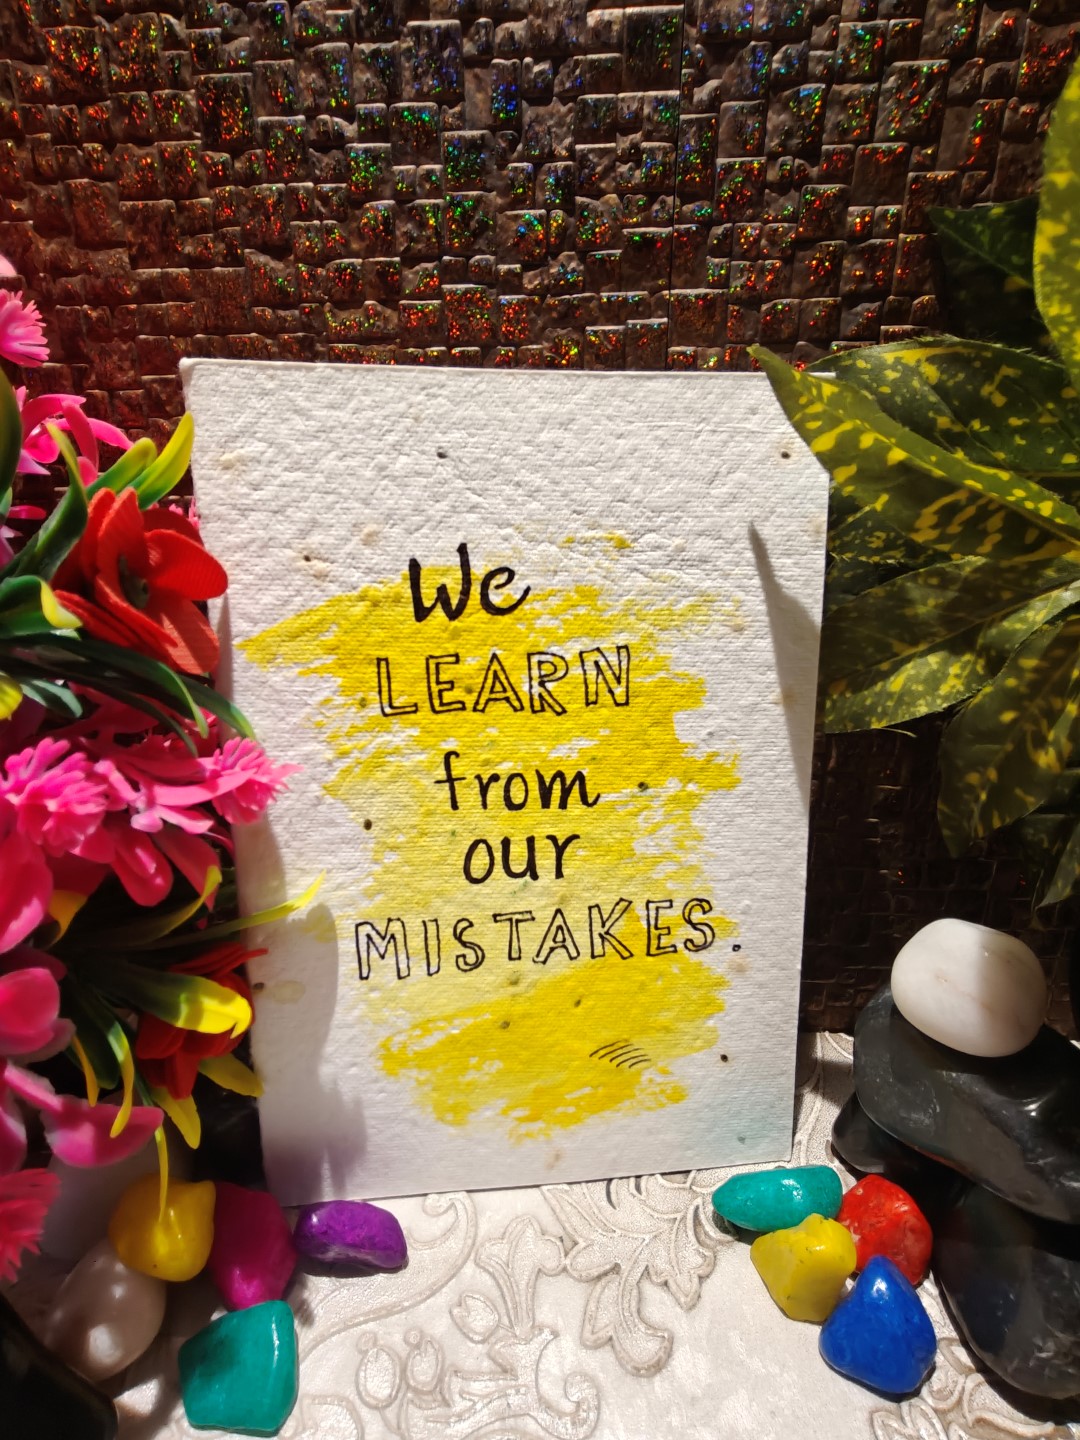 We
LEARN
from
our
MISTAKES.